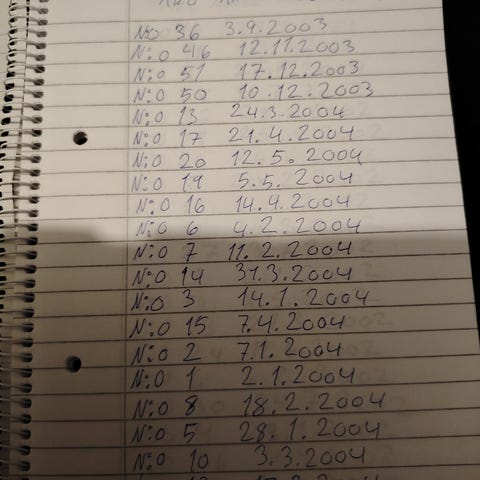 N:o 36 3.9.2003
N:o 46 12.11.2003
N:o 51 17.12.2003
N:o 50 10.12.2003
N:o 13 24.3.2004
N:o 17 21.4.2004
N:o 20 12.5.2004
N:o 19 5.5.2004
N:o 16 14.4.2004
N:o 6 4.2.2004
N:o 7 11.2.2004
N:o 14 31.3.2004
N:o 3 14.1.2004
N:o 15 7.4.2004
N:o 2 7.1.2004
N:o 1 2.1.2004
N:o 8 18.2.2004
N:o 5 28.1.2004
N:o 10 3.3.2004